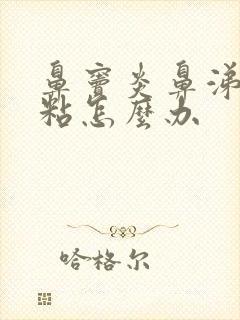 鼻窦炎鼻涕
粘怎麼办
哈格尔